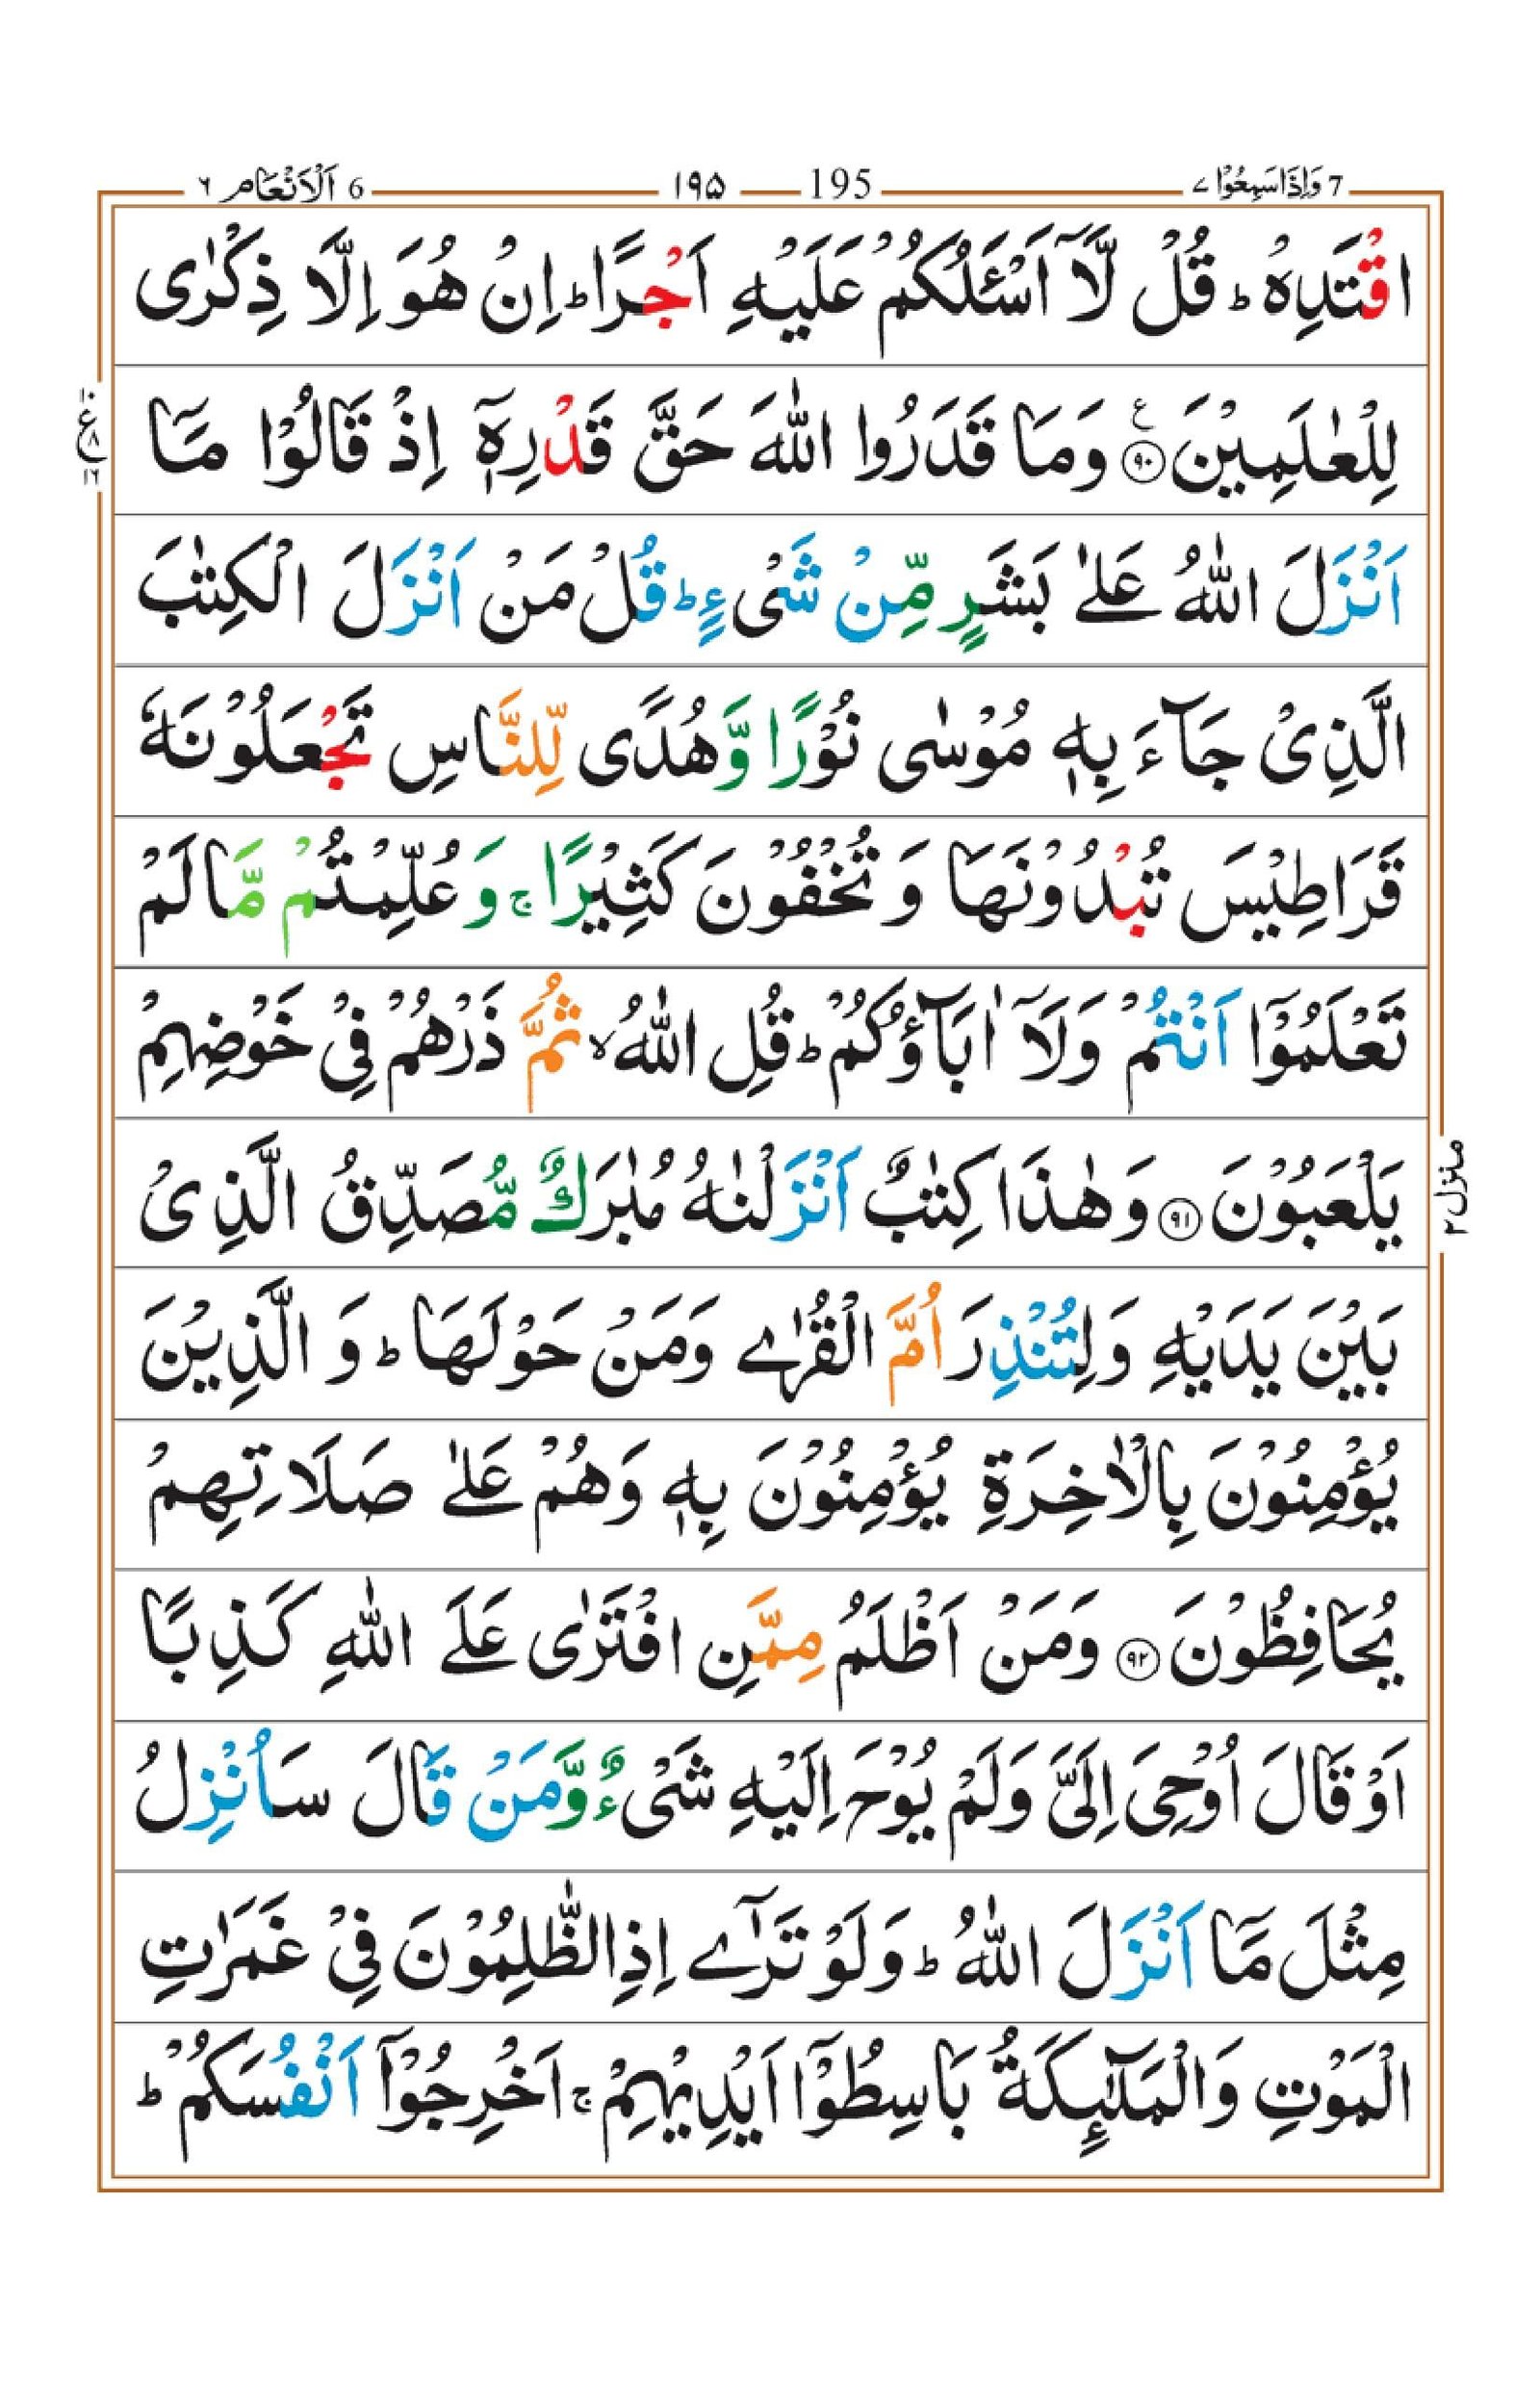 7 وَاِذَا سَمِعُوْا ٧ 195 ١٩٥ 6 اَلْاَنْعَام ٦
اقْتَدِهْ ؕ قُلْ لَّاۤ اَسْـَٔلُكُمْ عَلَيْهِ اَجْرًا ؕ اِنْ هُوَ اِلَّا ذِكْرٰى
لِلْعٰلَمِيْنَ ﴿٩٠﴾ ع وَمَا قَدَرُوا اللّٰهَ حَقَّ قَدْرِهٖۤ اِذْ قَالُوْا مَاۤ
١٠ ع ٨ ١٦
اَنْزَلَ اللّٰهُ عَلٰى بَشَرٍ مِّنْ شَىْءٍ ؕ قُلْ مَنْ اَنْزَلَ الْكِتٰبَ
الَّذِىْ جَآءَ بِهٖ مُوْسٰى نُوْرًا وَّهُدًى لِّلنَّاسِ تَجْعَلُوْنَهٗ
قَرَاطِيْسَ تُبْدُوْنَهَا وَ تُخْفُوْنَ كَثِيْرًا ۚ وَ عُلِّمْتُمْ مَّا لَمْ
تَعْلَمُوْۤا اَنْتُمْ وَلَاۤ اٰبَآؤُكُمْ ؕ قُلِ اللّٰهُ ۙ ثُمَّ ذَرْهُمْ فِىْ خَوْضِهِمْ
يَلْعَبُوْنَ ﴿٩١﴾ وَهٰذَا كِتٰبٌ اَنْزَلْنٰهُ مُبٰرَكٌ مُّصَدِّقُ الَّذِىْ
منزل ٢
بَيْنَ يَدَيْهِ وَلِتُنْذِرَ اُمَّ الْقُرٰے وَمَنْ حَوْلَهَا ؕ وَ الَّذِيْنَ
يُؤْمِنُوْنَ بِالْاٰخِرَةِ يُؤْمِنُوْنَ بِهٖ وَهُمْ عَلٰى صَلَاتِهِمْ
يُحَافِظُوْنَ ﴿٩٢﴾ وَمَنْ اَظْلَمُ مِمَّنِ افْتَرٰى عَلَى اللّٰهِ كَذِبًا
اَوْ قَالَ اُوْحِىَ اِلَىَّ وَلَمْ يُوْحَ اِلَيْهِ شَىْءٌ وَّمَنْ قَالَ سَاُنْزِلُ
مِثْلَ مَاۤ اَنْزَلَ اللّٰهُ ؕ وَلَوْ تَرٰٓے اِذِ الظّٰلِمُوْنَ فِىْ غَمَرٰتِ
الْمَوْتِ وَالْمَلٰٓئِكَةُ بَاسِطُوْۤا اَيْدِيْهِمْ ۚ اَخْرِجُوْۤا اَنْفُسَكُمْ ؕ